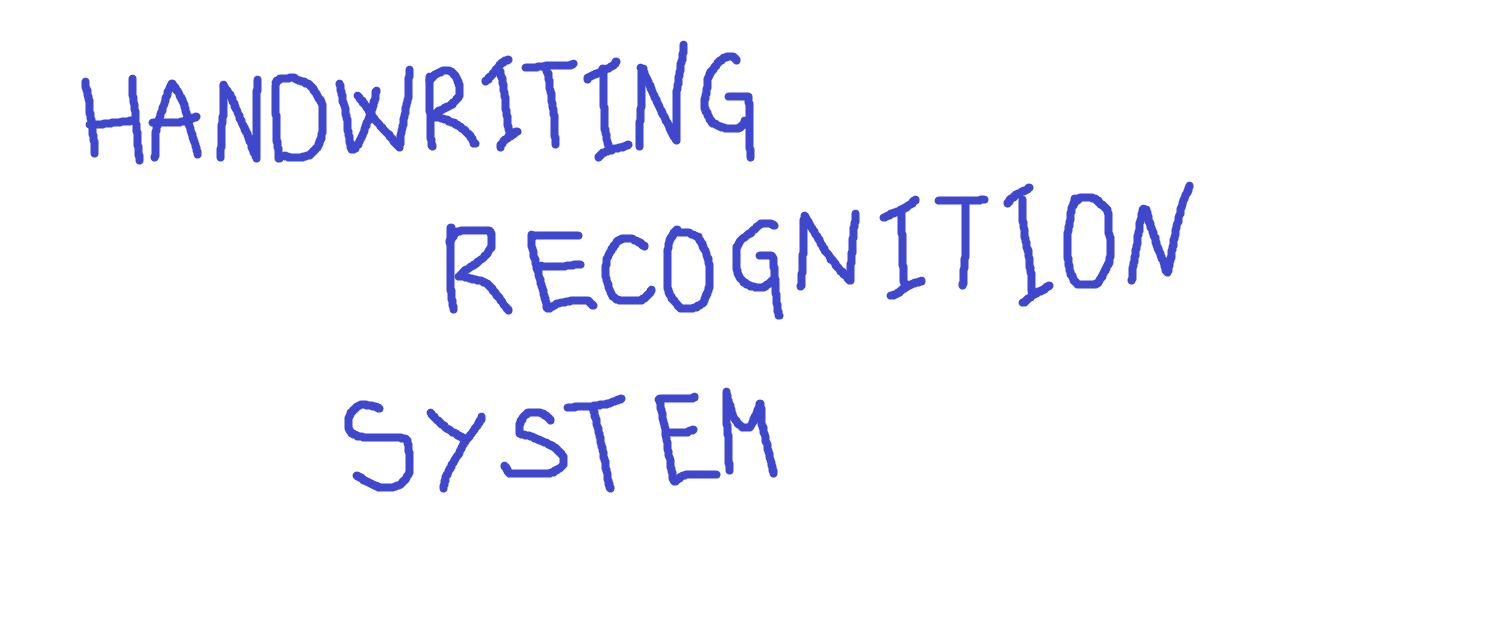 HANDWRITING
RECOGNITION
SYSTEM